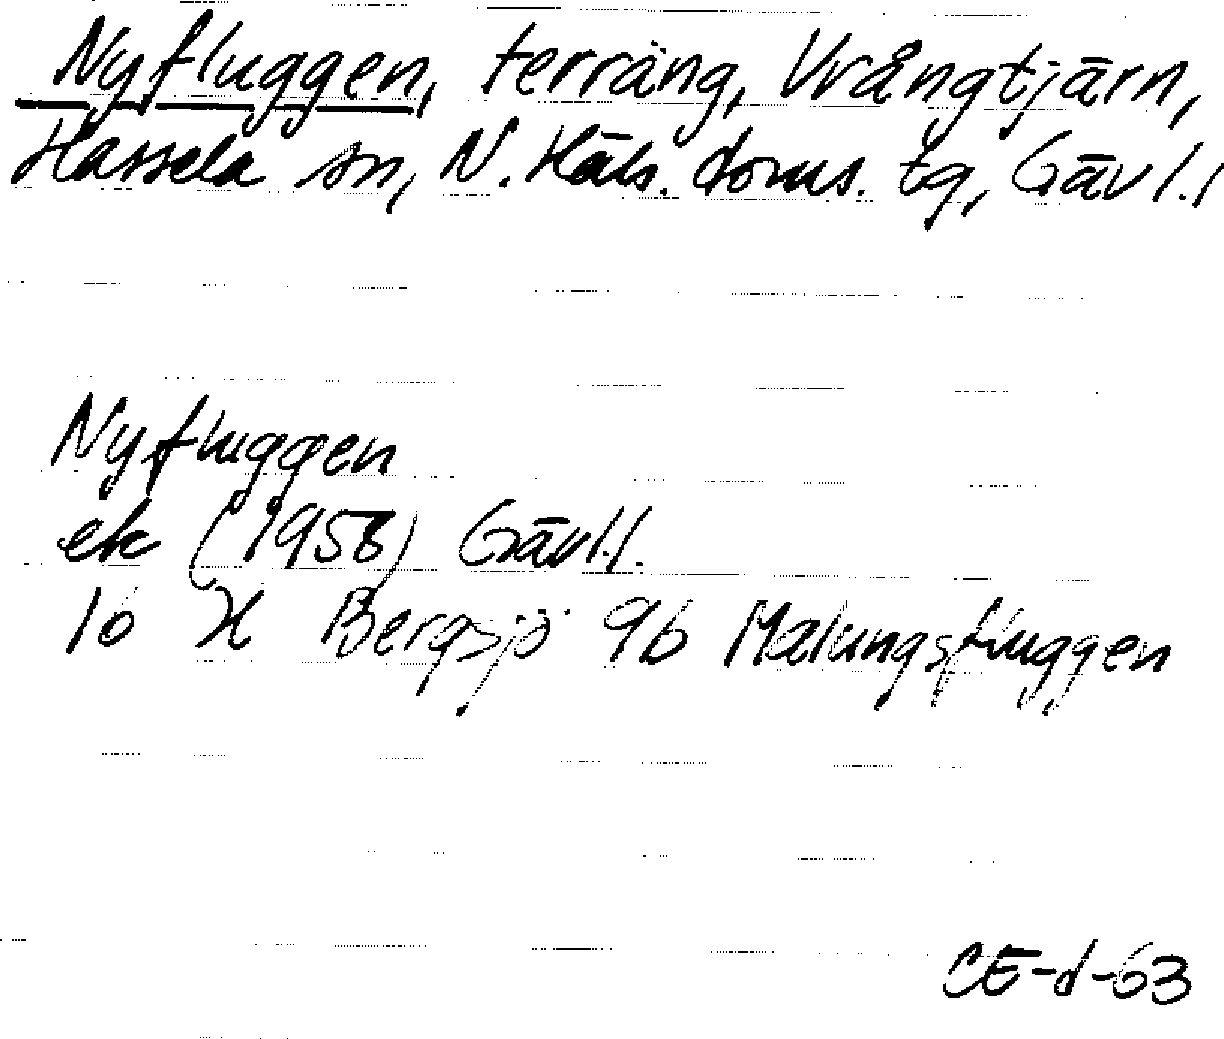 Nyfluggen, terräng, Vrångtjärn,
Hassela sn, N. Häls. doms. tg, Gävl.l
Nyfluggen
ek (1958) Gävl.l.
16 H Bergsjö 9b Malungsfluggen
CE-d-63